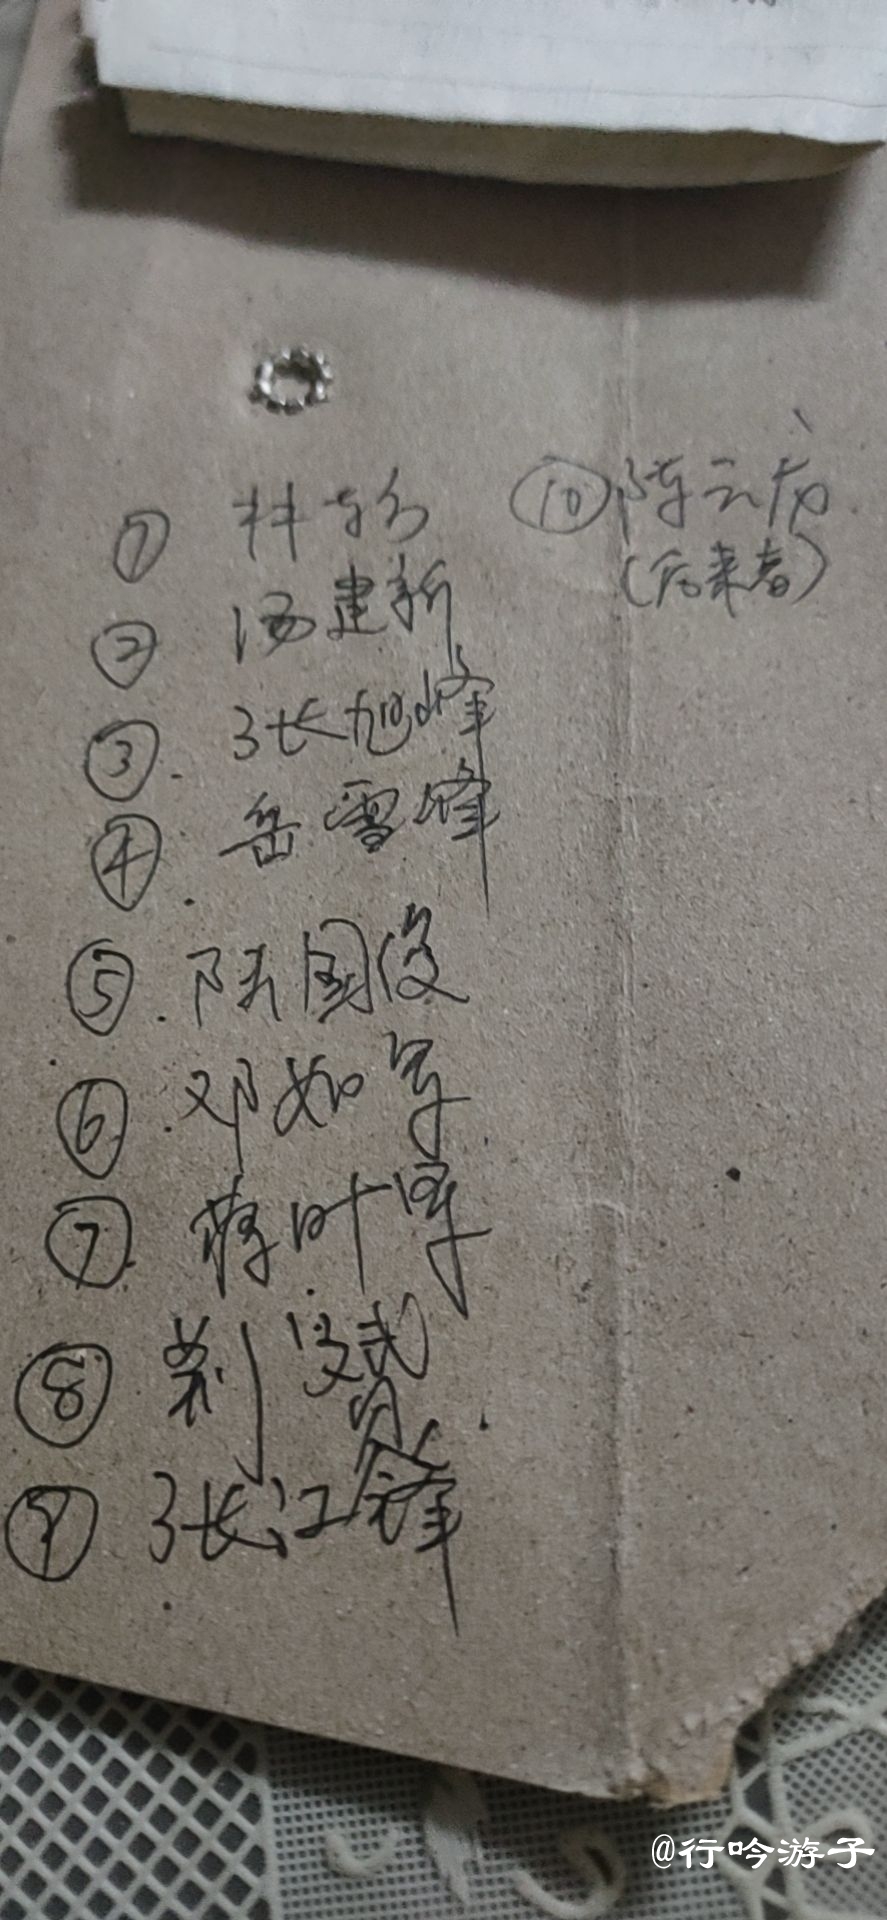 ① 林
② 汤建新
③. 张旭峰
④. 岳雪峰
⑤. 陆国俊
⑥. 邓如军
⑦. 蒋叶军
⑧ 
⑨ 张江锋
⑩ 陈云虎
(后来者)
@行吟游子